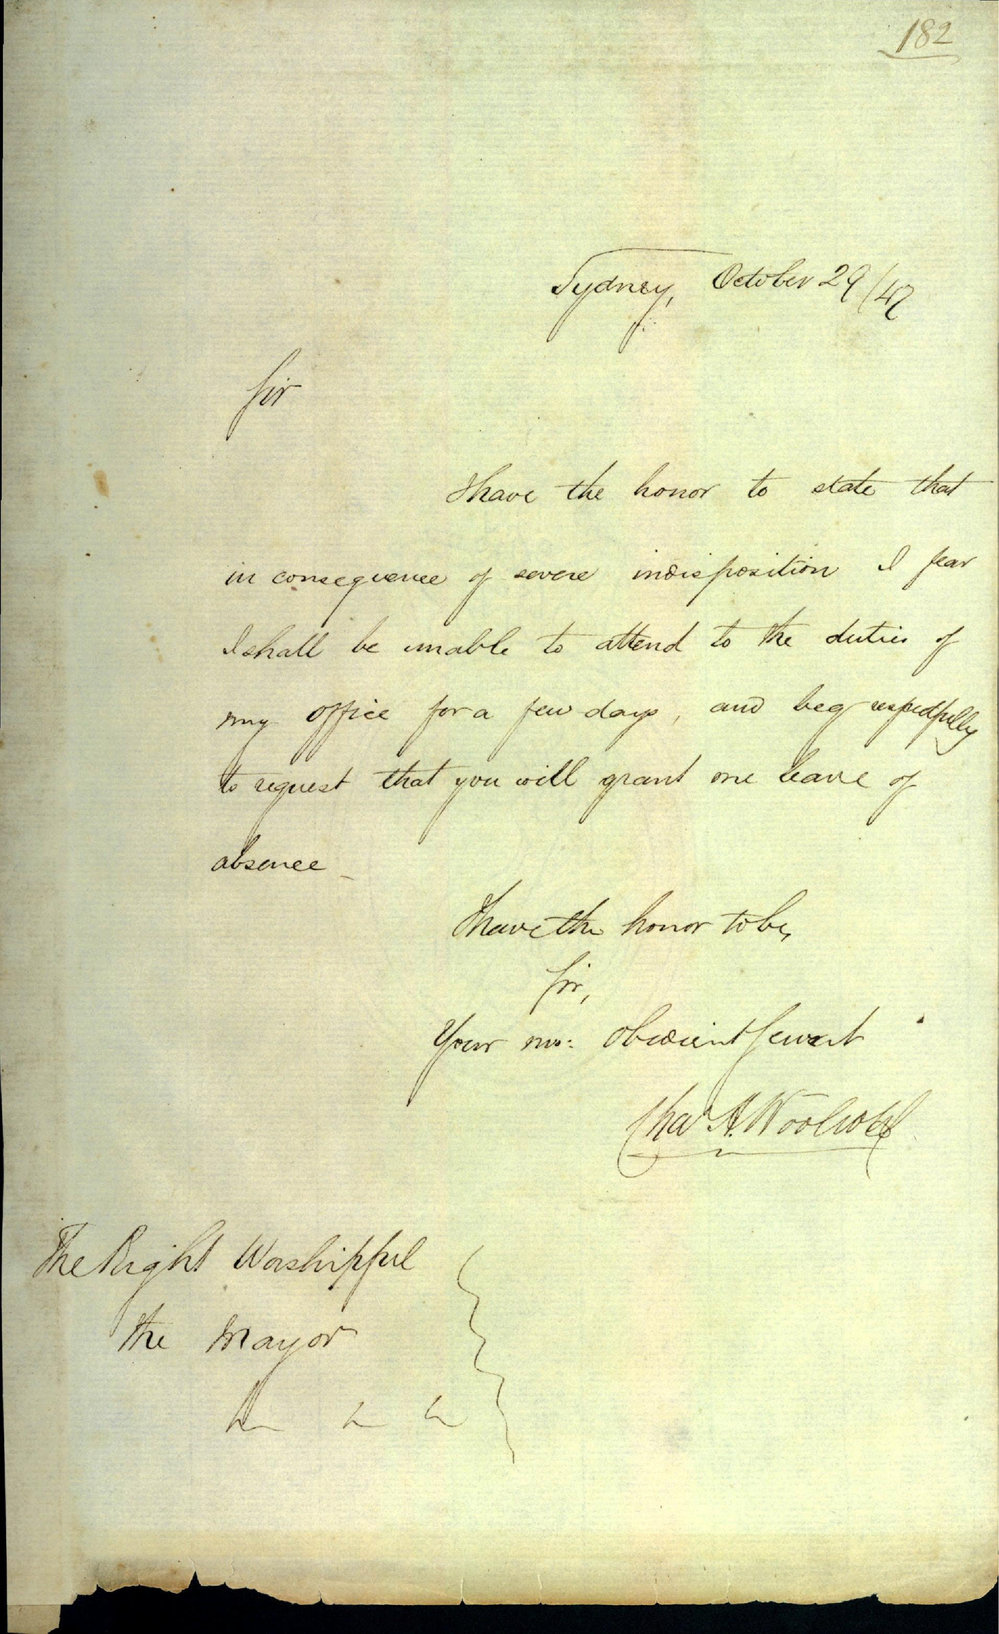 182
Sydney, October 29/47
Sir
I have the honor to state that
in consequence of severe indisposition I fear
I shall be unable to attend to the duties of
my office for a few days, and beg respectfully
to request that you will grant me leave of
absence _
I have the honor to be,
Sir,
Your mo: obedient Servant
Chas A. Woolcott
The Right Worshipful
the Mayor